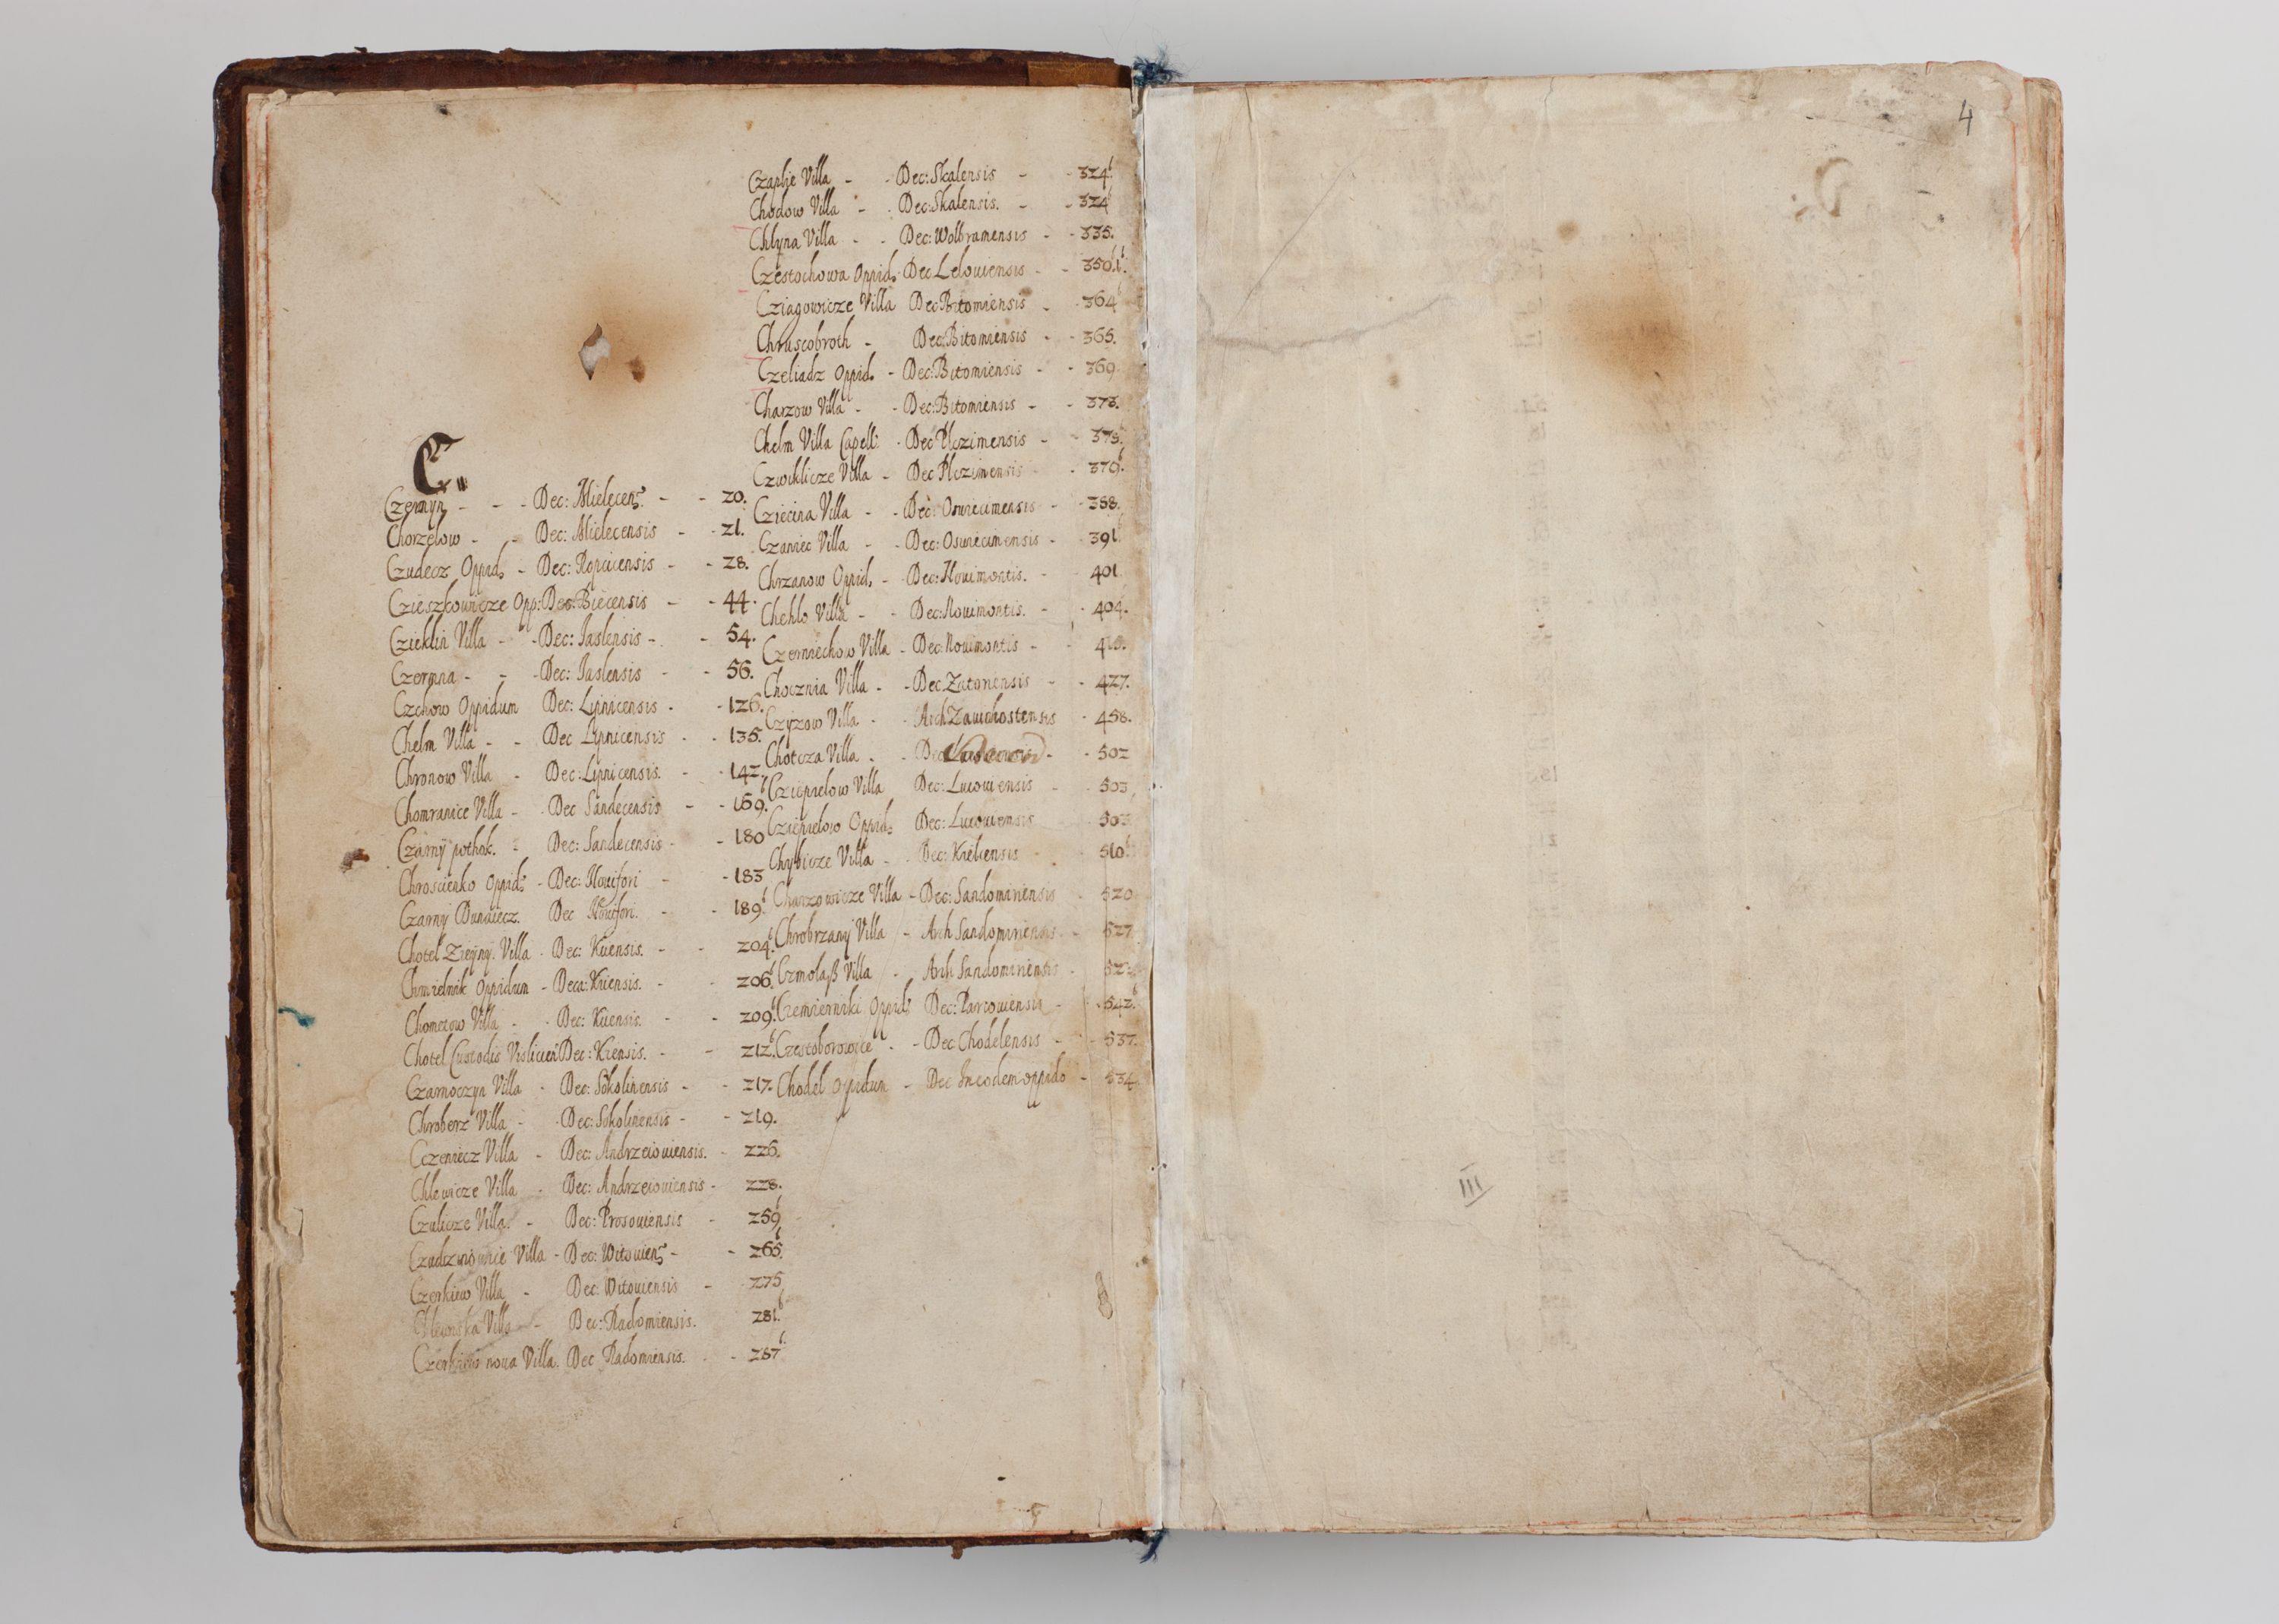 C.
Czermyn - - - Dec: Mielecens. - - 20.
Chorzelow - - Dec: Mielecensis - - 21.
Czudecz Oppid. - Dec: Ropcicensis - - 28.
Czieszkowicze Opp: Dec: Biecensis - - 44.
Czieklin Villa - - Dec: Iaslensis - - 54.
Czermna - - - Dec: Iaslensis - - 56.
Czchow Oppidum Dec: Lipnicensis - - 126.
Chelm Villa - - Dec Lipnicensis - - 135.
Chronow Villa - Dec: Lipnicensis. - - 142
Chomranice Villa - Dec Sandecensis - - 169.
Czarnÿ pothok. - Dec: Sandecensis - - 180
Chroscienko Oppid. - Dec: Nouifori - - 183
Czarny Dunaiecz. Dec Nouifori. - - 189.
Chotel Villa - Dec: Kiiensis. - - 204.
Chmielnik Oppidum - Deca: Kiiensis. - - 206.
Chomczow Villa - - Dec: Kiiensis. - - 209.
Chotel Custodis Dec: Kiensis. - - 212.
Czarnoczyn Villa - Dec: Sokolinensis - - 217.
Chroberz Villa - Dec: Sokolinensis - - 219.
Villa - Dec: Andrzeiouiensis. - 226.
Chlewicze Villa - Dec: Andrzeiouiensis - 228.
Czulicze Villa. - Dec: Prosouiensis - 259
Villa - Dec: Witouiens. - - 265.
Czerkiew Villa - Dec: Witouiensis - 275
Villa - Dec: Radomiensis. 281.
noua Villa. Dec Radomiensis. - 287
Czaplie Villa - - Dec: Skalensis - - 324.
Chodow Villa - - Dec: Skalensis. - - 324
Chlyna Villa - - Dec: Wolbramensis - - 335.
Czestochowa Oppid. Dec Lelouiensis - - 350.
Villa Dec Bitomiensis - - 364
Chruscobroth - Dec: Bitomiensis - - 365.
Czeliadz Oppid. - Dec: Bitomiensis - - 369
Charzow Villa - - Dec: Bitomiensis - - 373.
Chelm Villa Capell: - Dec Plczimensis - - 375.
Czwiklicze Villa - Dec Plczimensis - - 379.
Cziecina Villa - - Dec: Osuiecimensis - - 388.
Czaniec Villa - - Dec: Osuiecimensis - - 391.
Chrzanow Oppid. - - Dec: Nouimontis. - - 401
Chehlo Villa - - Dec: Nouimontis. - - 404.
Czerniechow Villa - Dec: Nouimontis - -
Chocznia Villa - - Dec: Zatoriensis - - 427.
Czyzow Villa - - Arch Zauichostensis - 458.
Chotcza Villa - - Dec - - 502
Cziepielow Villa Dec: - - 503
Cziepielow Oppid. Dec: 503
Chybicze Villa - - Dec: - 510.
Charzowicze Villa - Dec: Sandomiriensis - 520
Chrobrzany Villa - Arch Sandomiriensis - 527
Czmolaß Villa - Arch Sandomiriensis -
Czemierniki Oppid. Dec: Parcouiensis - - 542.
Czestoborowice - - Dec Chodelensis - - 537.
Chodel Oppidum - Dec In eodem oppido - 534
4
III